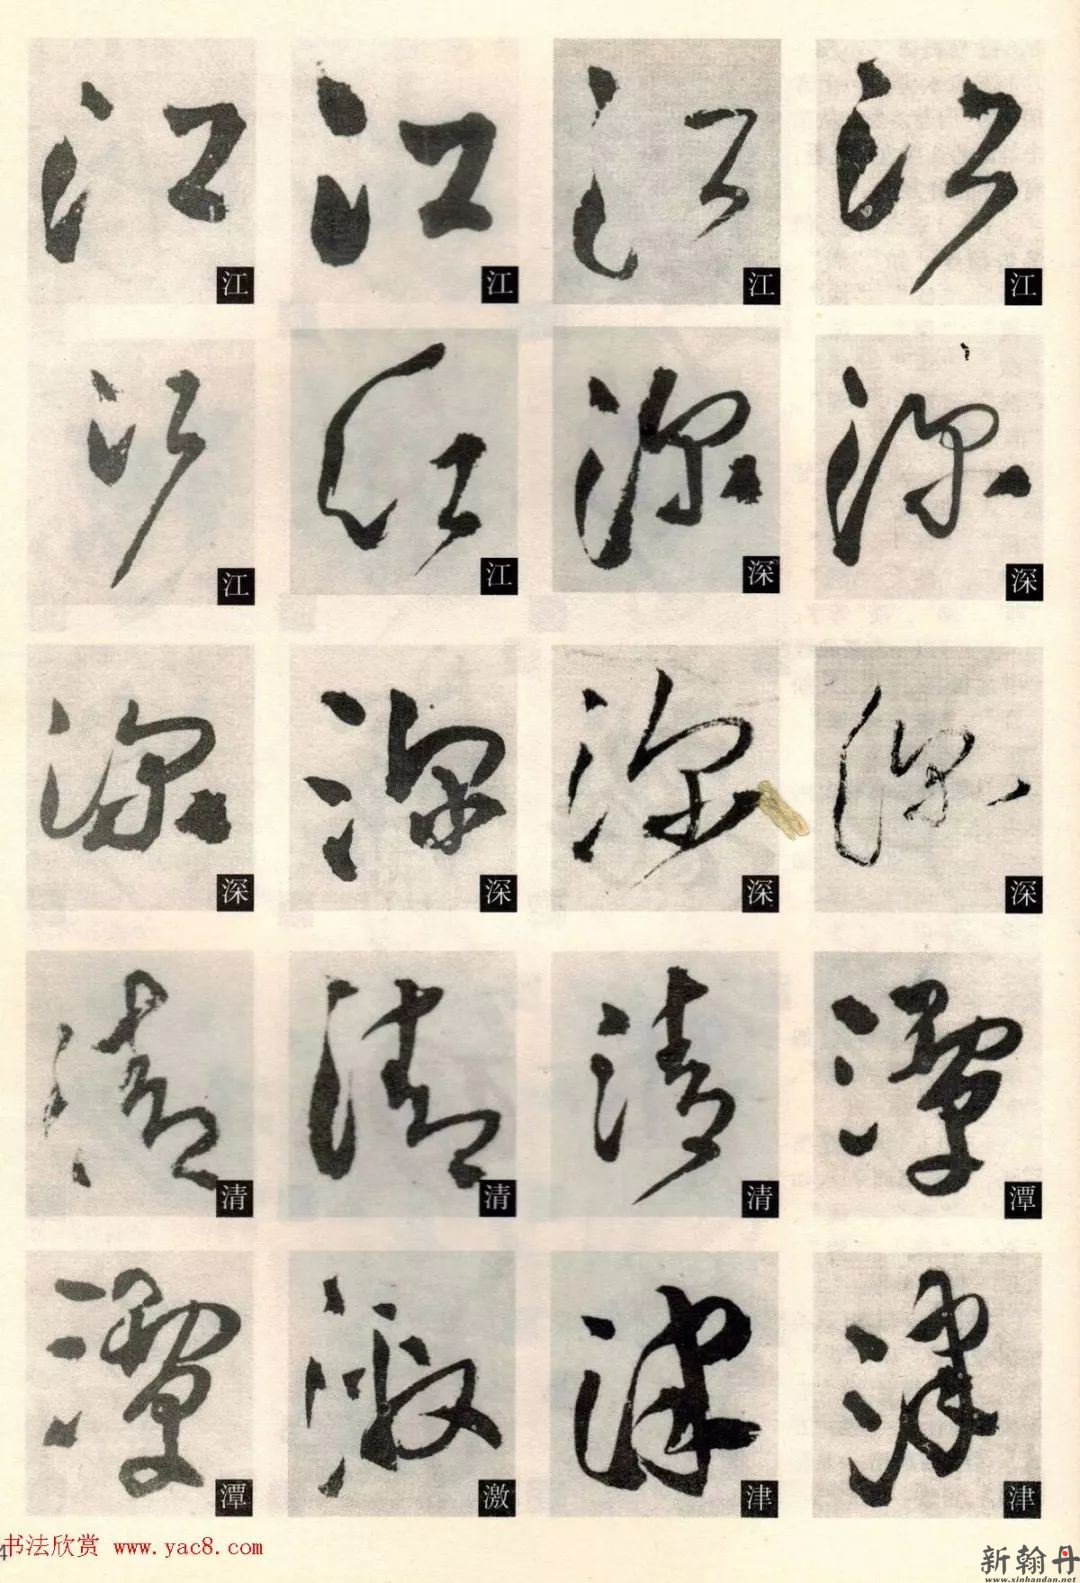 江 江 江 江
江 江 深 深
深 深 深 深
清 清 清 潭
潭 激 津 津
4
书法欣赏 www.yac8.com
新翰丹
www.xinhandan.net